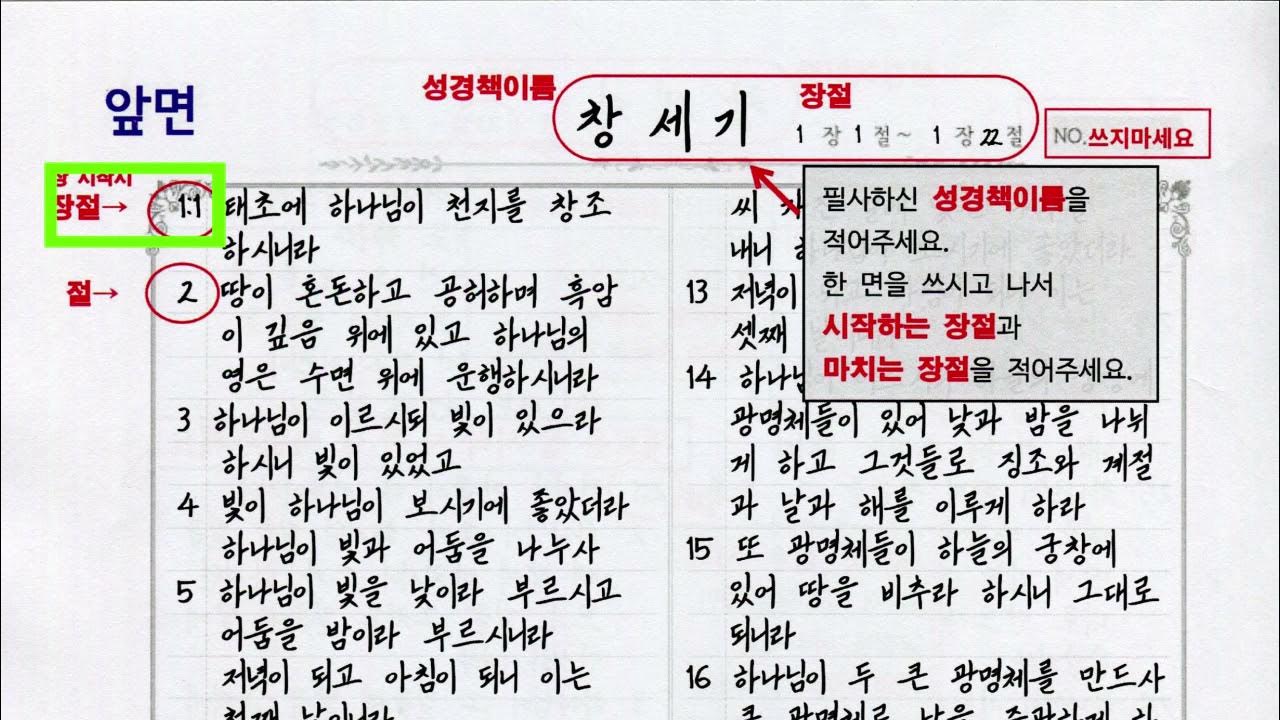 앞면
성경책이름
창세기
장절
1 장 1 절~ 1 장 22 절
NO. 쓰지마세요
장절→
절→
1:1 태초에 하나님이 천지를 창조
하시니라
2 땅이 혼돈하고 공허하며 흑암
이 깊음 위에 있고 하나님의
영은 수면 위에 운행하시니라
3 하나님이 이르시되 빛이 있으라
하시니 빛이 있었고
4 빛이 하나님이 보시기에 좋았더라
하나님이 빛과 어둠을 나누사
5 하나님이 빛을 낮이라 부르시고
어둠을 밤이라 부르시니라
저녁이 되고 아침이 되니 이는
첫째 날이니라
필사하신 성경책이름을
적어주세요.
한 면을 쓰시고 나서
시작하는 장절과
마치는 장절을 적어주세요.
씨
내니
13 저녁이
셋째
14 하나님
광명체들이 있어 낮과 밤을 나뉘
게 하고 그것들로 징조와 계절
과 날과 해를 이루게 하라
15 또 광명체들이 하늘의 궁창에
있어 땅을 비추라 하시니 그대로
되니라
16 하나님이 두 큰 광명체를 만드사
큰 광명체로 낮을 주관하게 하